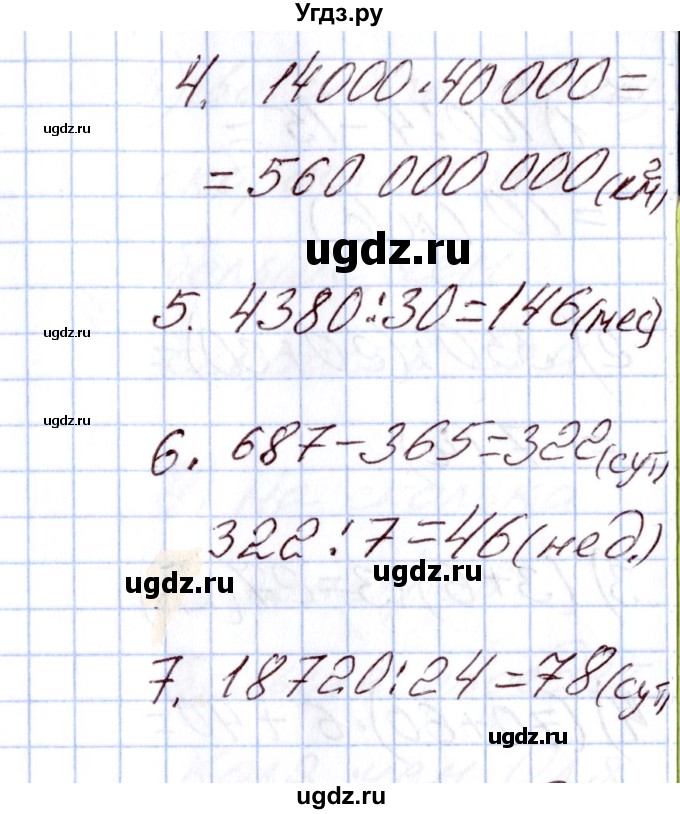 Угдз.ру
4. 14000·40 000=
ugdz.ru
=560 000 000(км²)
ugdz.ru
5. 4380:30=146(мес)
ugdz.ru
ugdz.ru
6. 687-365=322(сут)
322:7=46(нед.)
ugdz.ru
ugdz.ru
7. 18720:24=78(сут)
ugdz.ru
ugdz.ru